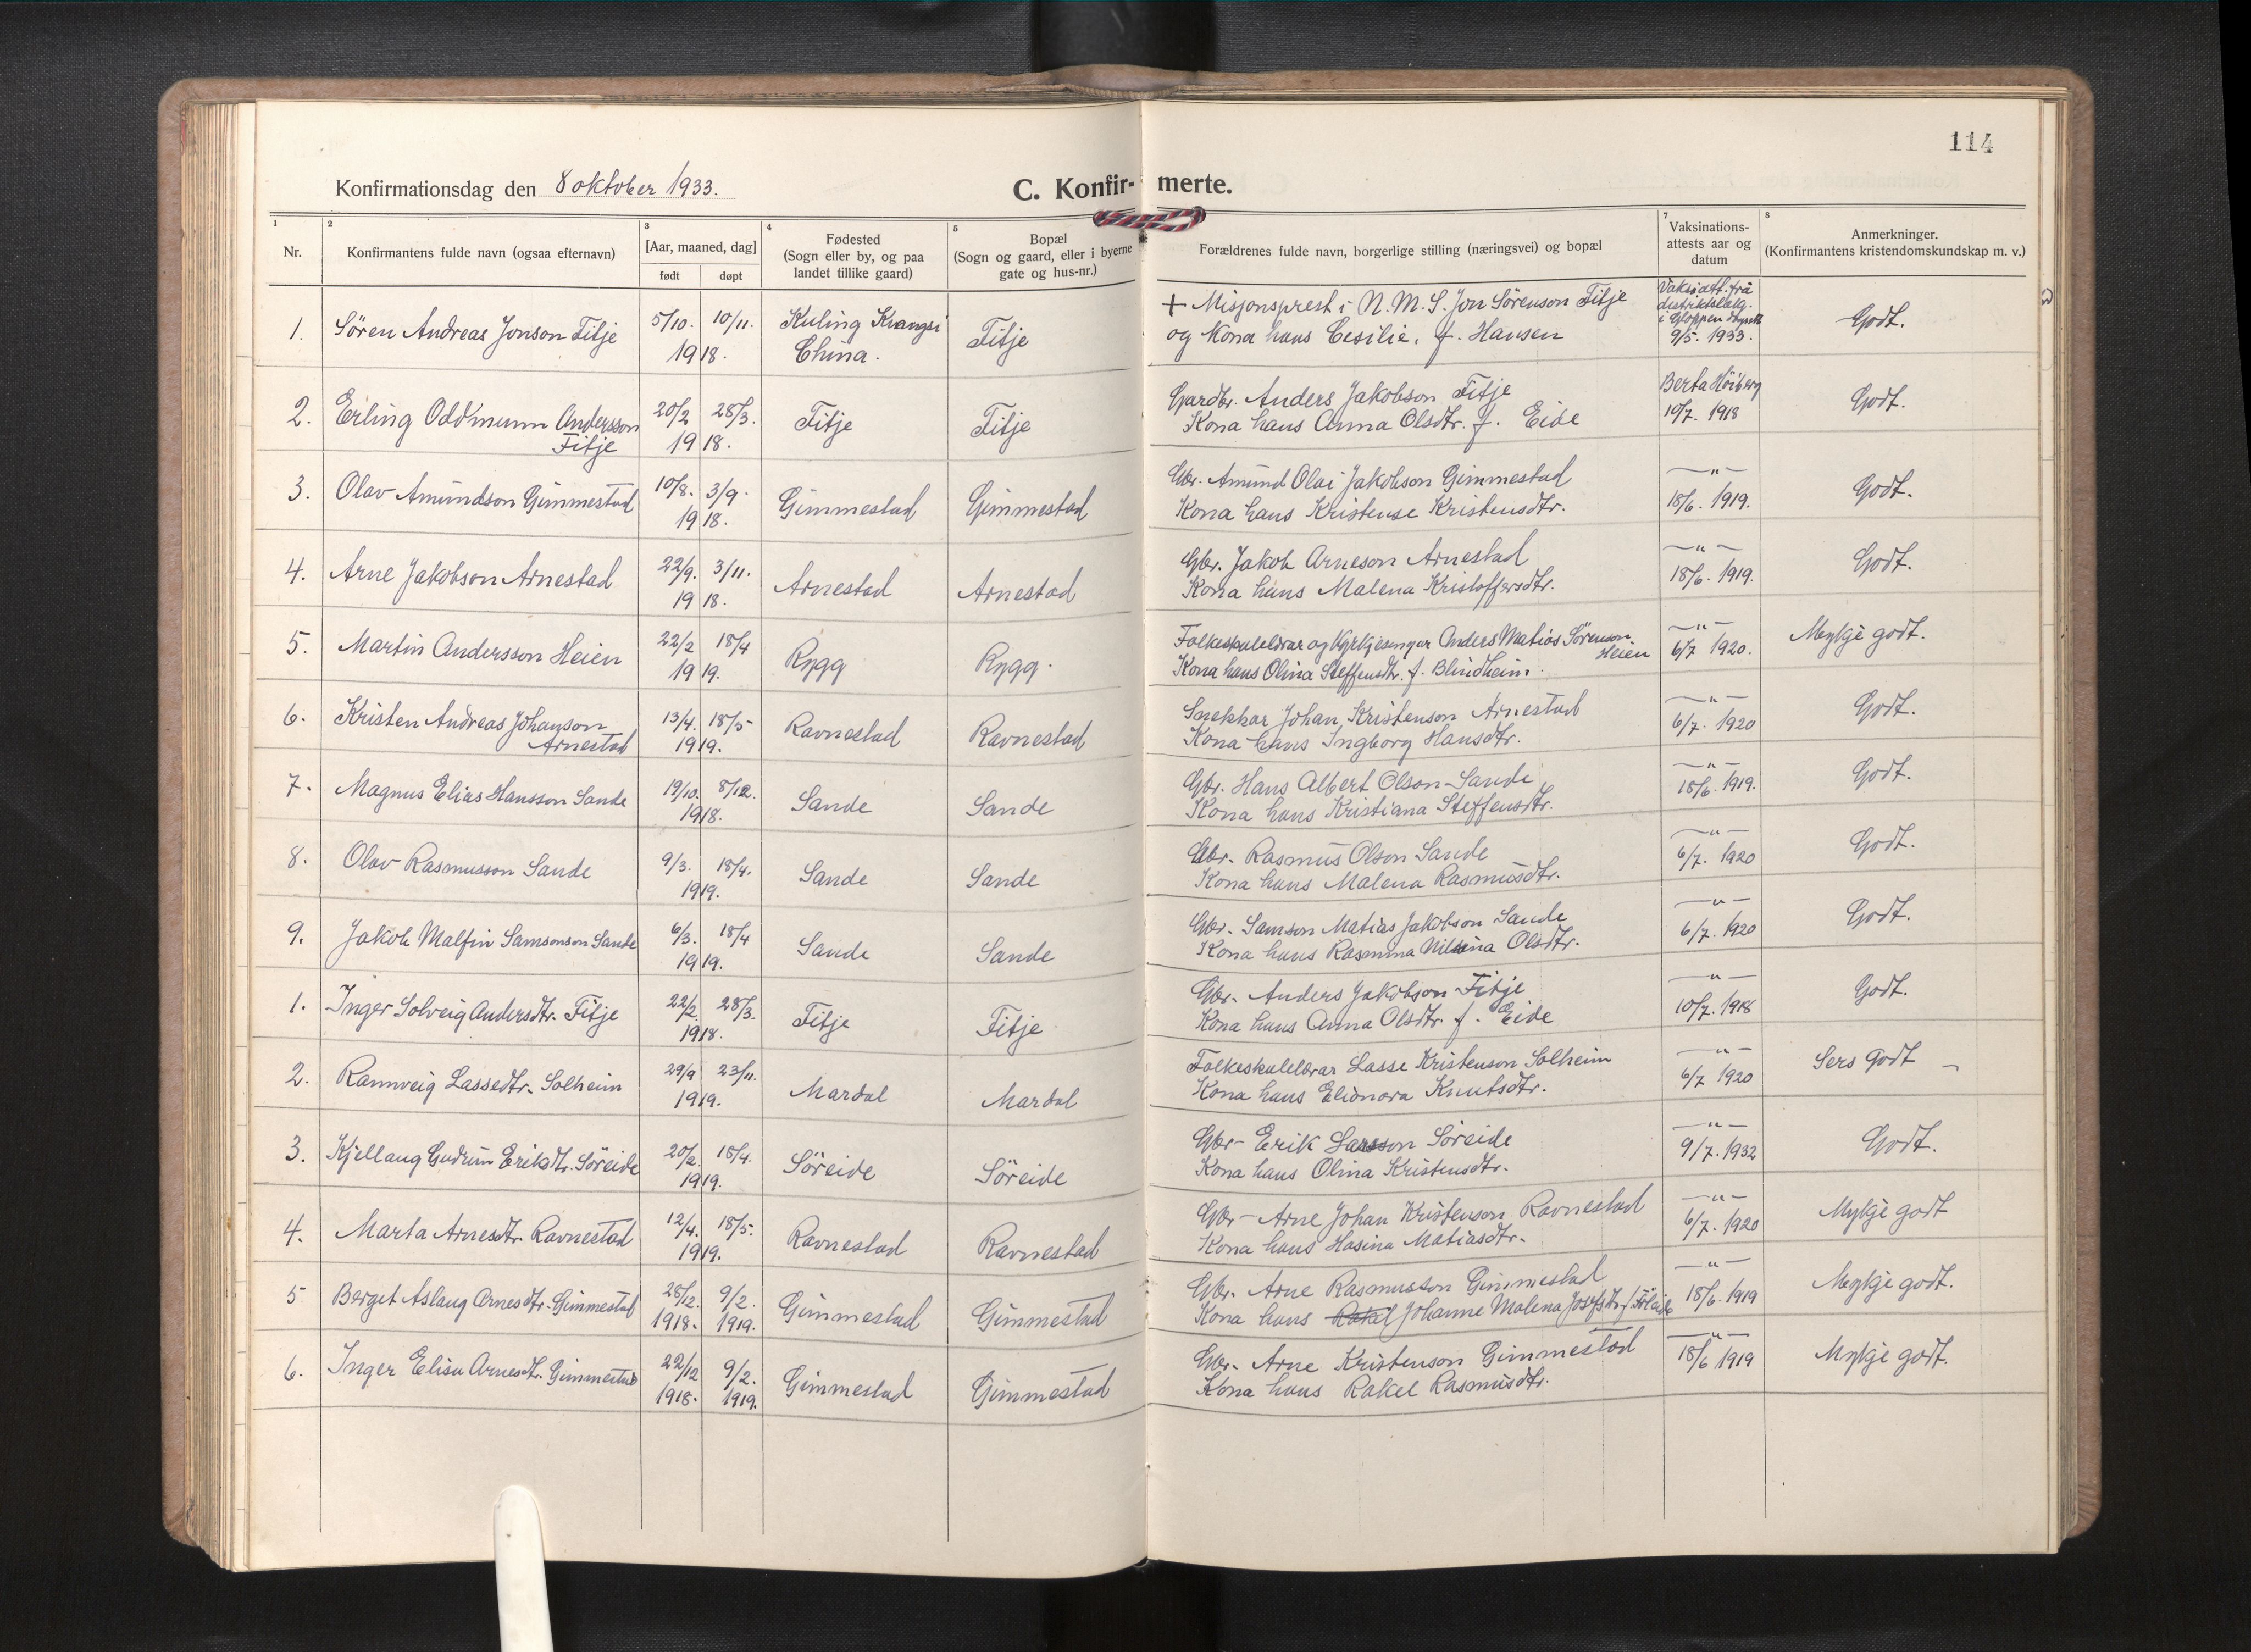 114
Konfirmationsdag den 8 oktober 1933.
C. Konfir- merte.
1 2 3 4 5 7 8
Nr.
Konfirmantens fulde navn (ogsaa efternavn)
[Aar, maaned, dag]
født døpt
Fødested
(Sogn eller by, og paa
landet tillike gaard)
Bopæl
(Sogn og gaard, eller i byerne
gate og hus-nr.)
Forældrenes fulde navn, borgerlige stilling (næringsvei) og bopæl
Vaksinations-
attests aar og
datum
Anmerkninger.
(Konfirmantens kristendomskundskap m. v.)
1. Sören Andreas Jonson Fitje 5/10. 10/11. 1918. Kuling Kiangsi
China. Fitje
+ Misjonsprest i N. M. S. Jon Sörenson Fitje
og Kona hans Cesilie, f. Hansen
Vaks.att. frå
distriktslæg.
i Gloppen
9/5. 1933. Godt.
2. Erling Oddmunn Andersson
Fitje 20/2 28/3. 1918. Fitje Fitje
Gardbr. Anders Jakobson Fitje
Kona hans Anna Olsdtr. f. Eide
Berta Höiberg
10/7. 1918 Godt.
3. Olav Amundson Gimmestad 10/8. 3/9. 1918. Gimmestad Gimmestad
Gbr. Amund Olai Jakobson Gimmestad
Kona hans Kristense Kristensdtr.
—"—
18/6. 1919. Godt.
4. Arne Jakobson Arnestad 22/9. 3/11. 1918. Arnestad Arnestad
Gbr. Jakob Arneson Arnestad
Kona hans Malena Kristoffersdtr.
—"—
18/6. 1919. Godt.
5. Martin Andersson Heien 22/2 18/4 1919. Rygg Rygg.
Folkeskulelærar og Kyrkjesongar Anders Matias Sörenson
Heien
Kona hans Olina Steffensdtr. f. Blindheim.
—"—
6/7 1920. Mykje godt.
6. Kristen Andreas Johanson
Arnestad 13/4. 18/5 1919. Ravnestad Ravnestad
Snekkar Johan Kristenson Arnestad
Kona hans Ingborg Hansdtr.
—"—
6/7. 1920 Godt.
7. Magnus Elias Hansson Sande 19/10. 8/12. 1918. Sande Sande
Gbr. Hans Albert Olson Sande
Kona hans Kristiana Steffensdtr.
—"—
18/6. 1919. Godt.
8. Olav Rasmusson Sande 9/3. 18/4. 1919. Sande Sande
Gbr. Rasmus Olson Sande
Kona hans Malena Rasmusdtr.
—"—
6/7. 1920 Godt.
9. Jakob Malfin Samsonson Sande 6/3. 18/4 1919. Sande Sande
Gbr. Samson Matias Jakobson Sande
Kona hans Rasmina Olsdtr.
—"—
6/7. 1920 Godt.
1. Inger Solveig Andersdtr. Fitje 22/2. 28/3. 1918. Fitje Fitje
Gbr. Anders Jakobson Fitje
Kona hans Anna Olsdtr. f. Eide
—"—
10/7. 1918 Godt.
2. Rannveig Lassedtr. Solheim 29/9 23/11. 1919. Mardal Mardal
Folkeskulelærar Lasse Kristenson Solheim
Kona hans Elionora Knutsdtr.
—"—
6/7 1920 Sers godt —
3. Kjellaug Gudrun Eriksdtr. Söreide 20/2. 18/4. 1919. Söreide Söreide
Gbr. Erik Larsson Söreide
Kona hans Olina Kristensdtr.
—"—
9/7. 1932 Godt.
4. Marta Arnesdtr. Ravnestad 12/4. 18/5. 1919. Ravnestad Ravnestad
Gbr. Arne Johan Kristenson Ravnestad
Kona hans Hasina Matiasdtr.
—"—
6/7. 1920 Mykje godt
5 Berget Aslaug Arnesdtr. Gimmestad 28/12. 1918. 9/2. 1919. Gimmestad Gimmestad
Gbr. Arne Rasmusson Gimmestad
Kona hans Rakel Johanne Malena Josefsdtr. f.
—"—
18/6. 1919 Mykje godt.
6. Inger Elisa Arnesdtr. Gimmestad 22/12 1918. 9/2. 1919. Gimmestad Gimmestad
Gbr. Arne Kristenson Gimmestad
Kona hans Rakel Rasmusdtr.
—"—
18/6 1919 Mykje godt.